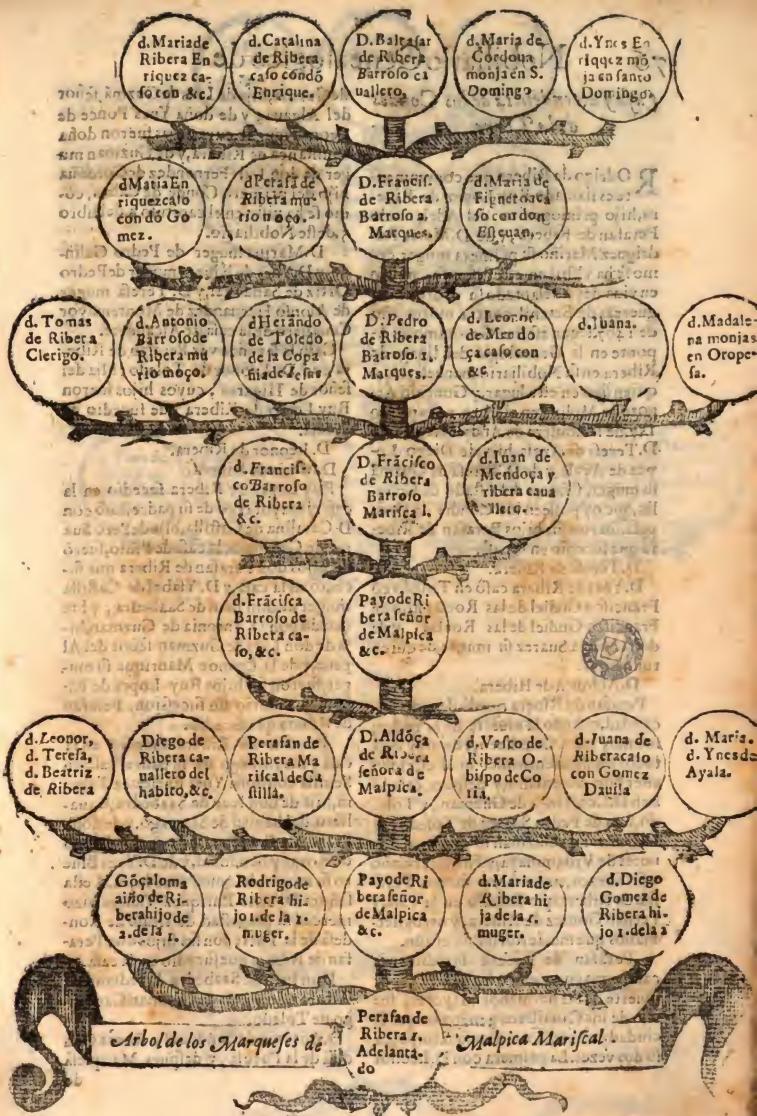 d. Maria de
Ribera En
riquez ca-
so con &c.
d. Catalina
de Ribera
caso condō
Enrique.
D. Baltasar
de Ribera
Barroso ca
uallero.
d. Maria de
Cordoua
monja en S.
Domingo
d. Ynes En
riquez mō
ja en santo
Domingo.
d Maria En
riquez caso
con dō Go
mez.
d Perafā de
Ribera mu-
rio moço.
D. Francis.
de Ribera
Barroso 2.
Marques.
d. Maria de
Figueroa ca
so con don
Esteuan.
d. Tomas
de Ribera
Clerigo.
d. Antonio
Barroso de
Ribera mu
rio moço.
d Herādo
de Toledo
de la Cōpa
ñia de Iesus
D. Pedro
de Ribera
Barroso 1.
Marques.
d. Leonor
de Mendo
ça caso con
&c.
d. Iuana.
d. Madale-
na monjas
en Orope-
sa.
d. Francis-
co Barroso
de Ribera
&c.
D. Frācisco
de Ribera
Barroso
Marisca l.
d. Iuan de
Mendoça y
ribera caua
llero.
d. Frācisca
Barroso de
Ribera ca-
so, &c.
Payo de Ri
bera señor
de Malpica
&c.
d. Leonor,
d. Teresa,
d. Beatriz
de Ribera
Diego de
Ribera ca-
uallero del
habito, &c.
Perasan de
Ribera Ma
riscal de Ca
stilla.
D. Aldōça
de Ribera
señora de
Malpica.
d. Vasco de
Ribera O-
bispo de Co
ria.
d. Iuana de
Ribera caso
con Gomez
Dauila
d. Maria.
d. Ynes de
Ayala.
Gōçalo ma
riño de Ri-
bera hijo de
2. de la 1.
Rodrigo de
Ribera hi-
jo 1. de la 1.
muger.
Payo de Ri
bera señor
de Malpica
&c.
d. Maria de
Ribera hi
ja de la 1.
muger.
d. Diego
Gomez de
Ribera hi-
jo 1. de la 2
Arbol de los Marqueses de
Perasan de
Ribera 1.
Adelanta-
do
Malpica Mariscal.